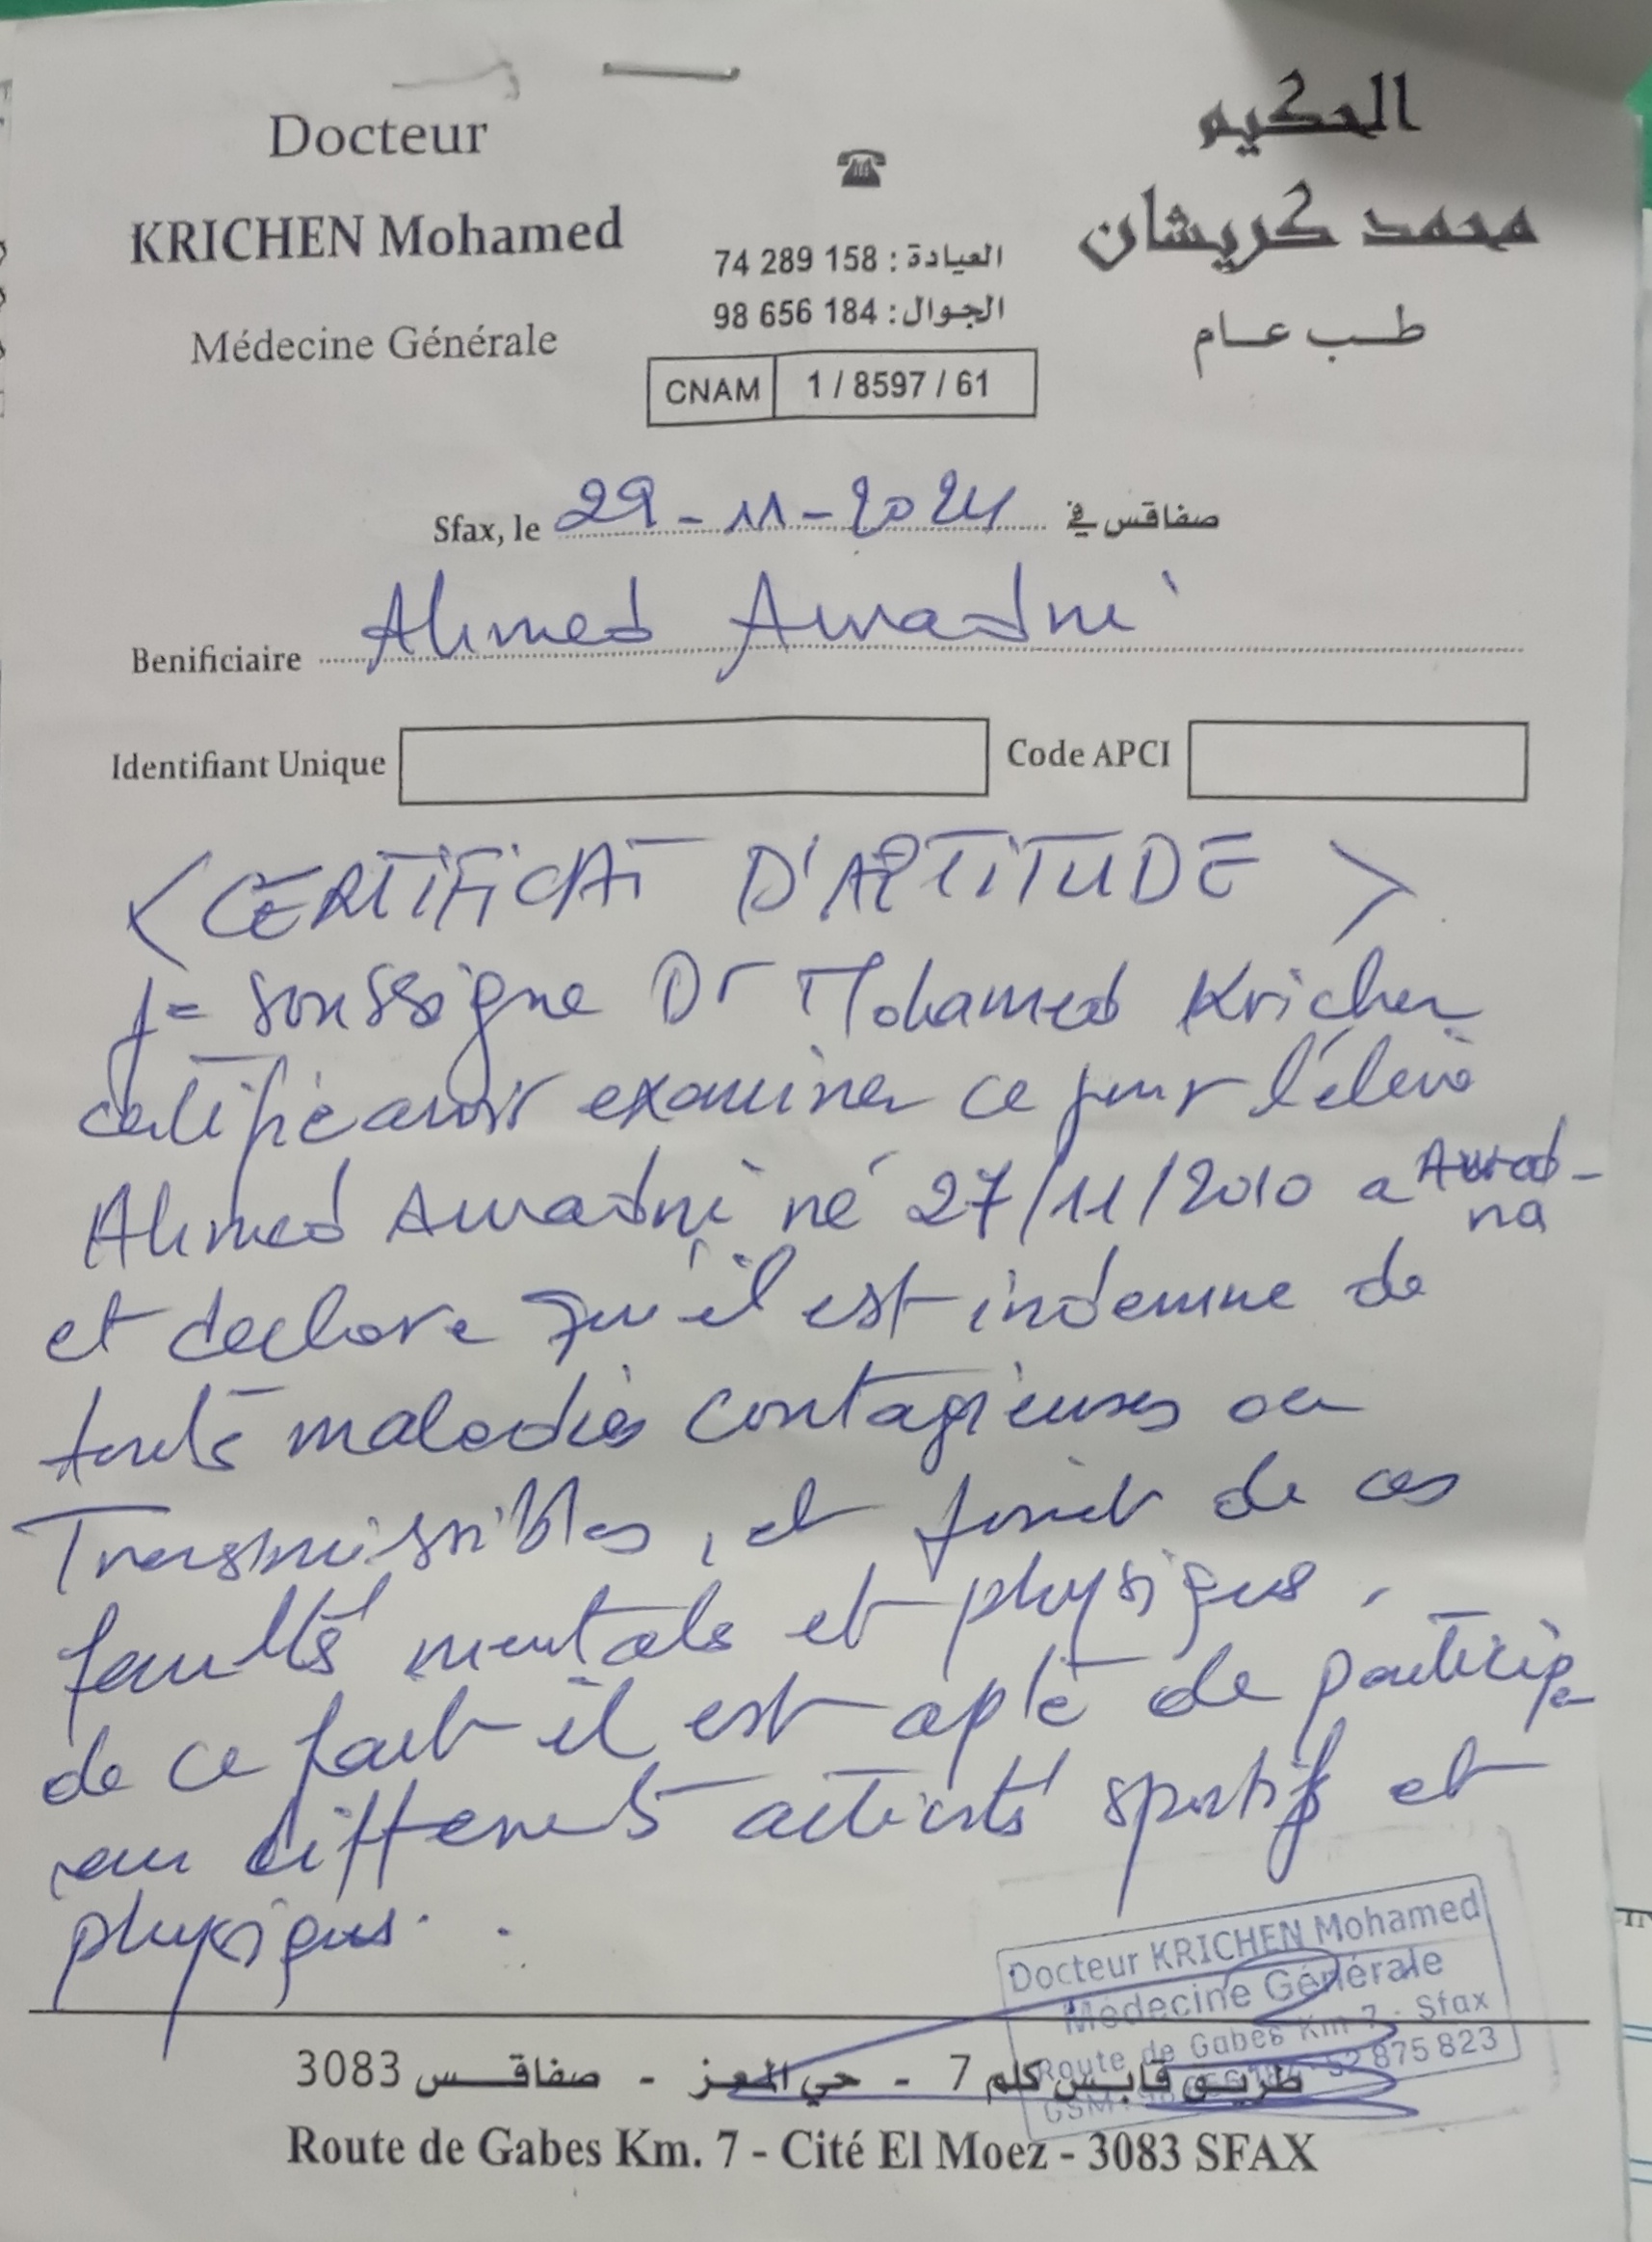 Docteur
KRICHEN Mohamed
Médecine Générale
العيادة : 74 289 158
الجوال : 98 656 184
CNAM 1 / 8597 / 61
الحكيم
محمد كريشان
طب عام
Sfax, le 29-11-2024 صفاقس في
Benificiaire Ahmed Awadni
Identifiant Unique Code APCI
<CERTIFICAT D'APTITUDE>
Je soussigne Dr Mohamed Krichen
certifie avoir examiner ce jour l'élève
Ahmed Awadni né 27/11/2010 a Awad-
na
et declare qu'il est indemne de
touts maladies contagieuses ou
Transmissibles, et jouit de ces
facultés mentals et physiques.
de ce fait il est apte de participer
au differents activités sportifs et
physiques.
Docteur KRICHEN Mohamed
Médecine Générale
Route de Gabes Km 7 - Sfax
GSM 52 875 823
طريق قابس كلم 7 - حي المعز - صفاقس 3083
Route de Gabes Km. 7 - Cité El Moez - 3083 SFAX